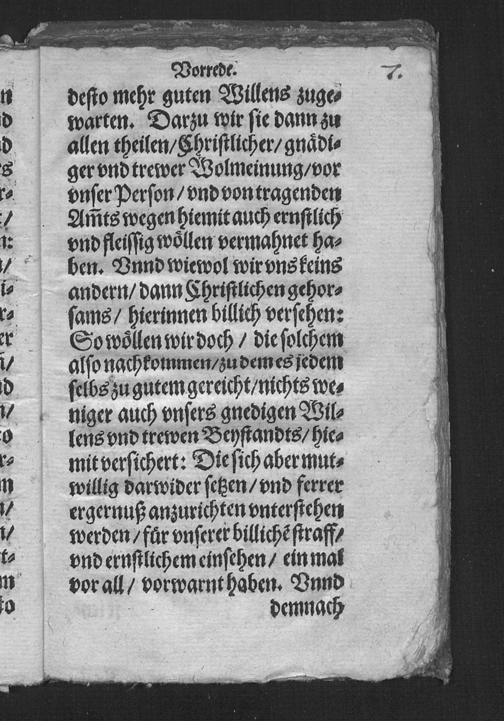 Vorrede. 7.
desto mehr guten Willens zuge⸗
warten. Darzu wir sie dann zu
allen theilen/Christlicher/gnädi⸗
ger vnd trewer Wolmeinung/vor
vnser Person/vnd von tragenden
Am̃ts wegen hiemit auch ernstlich
vnd fleissig wöllen vermahnet ha⸗
ben. Vnnd wiewol wir vns keins
andern/dann Christlichen gehor⸗
sams/hierinnen billich versehen:
So wöllen wir doch/die solchem
also nachkommen/zu dem es jedem
selbs zu gutem gereicht/nichts we⸗
niger auch vnsers gnedigen Wil⸗
lens vnd trewen Beystandts/hie⸗
mit versichert: Die sich aber mut⸗
willig darwider setzen/vnd ferrer
ergernuß anzurichten vnterstehen
werden/für vnserer billichẽ straff/
vnd ernstlichem einsehen/ein mal
vor all/vorwarnt haben. Vnnd
demnach